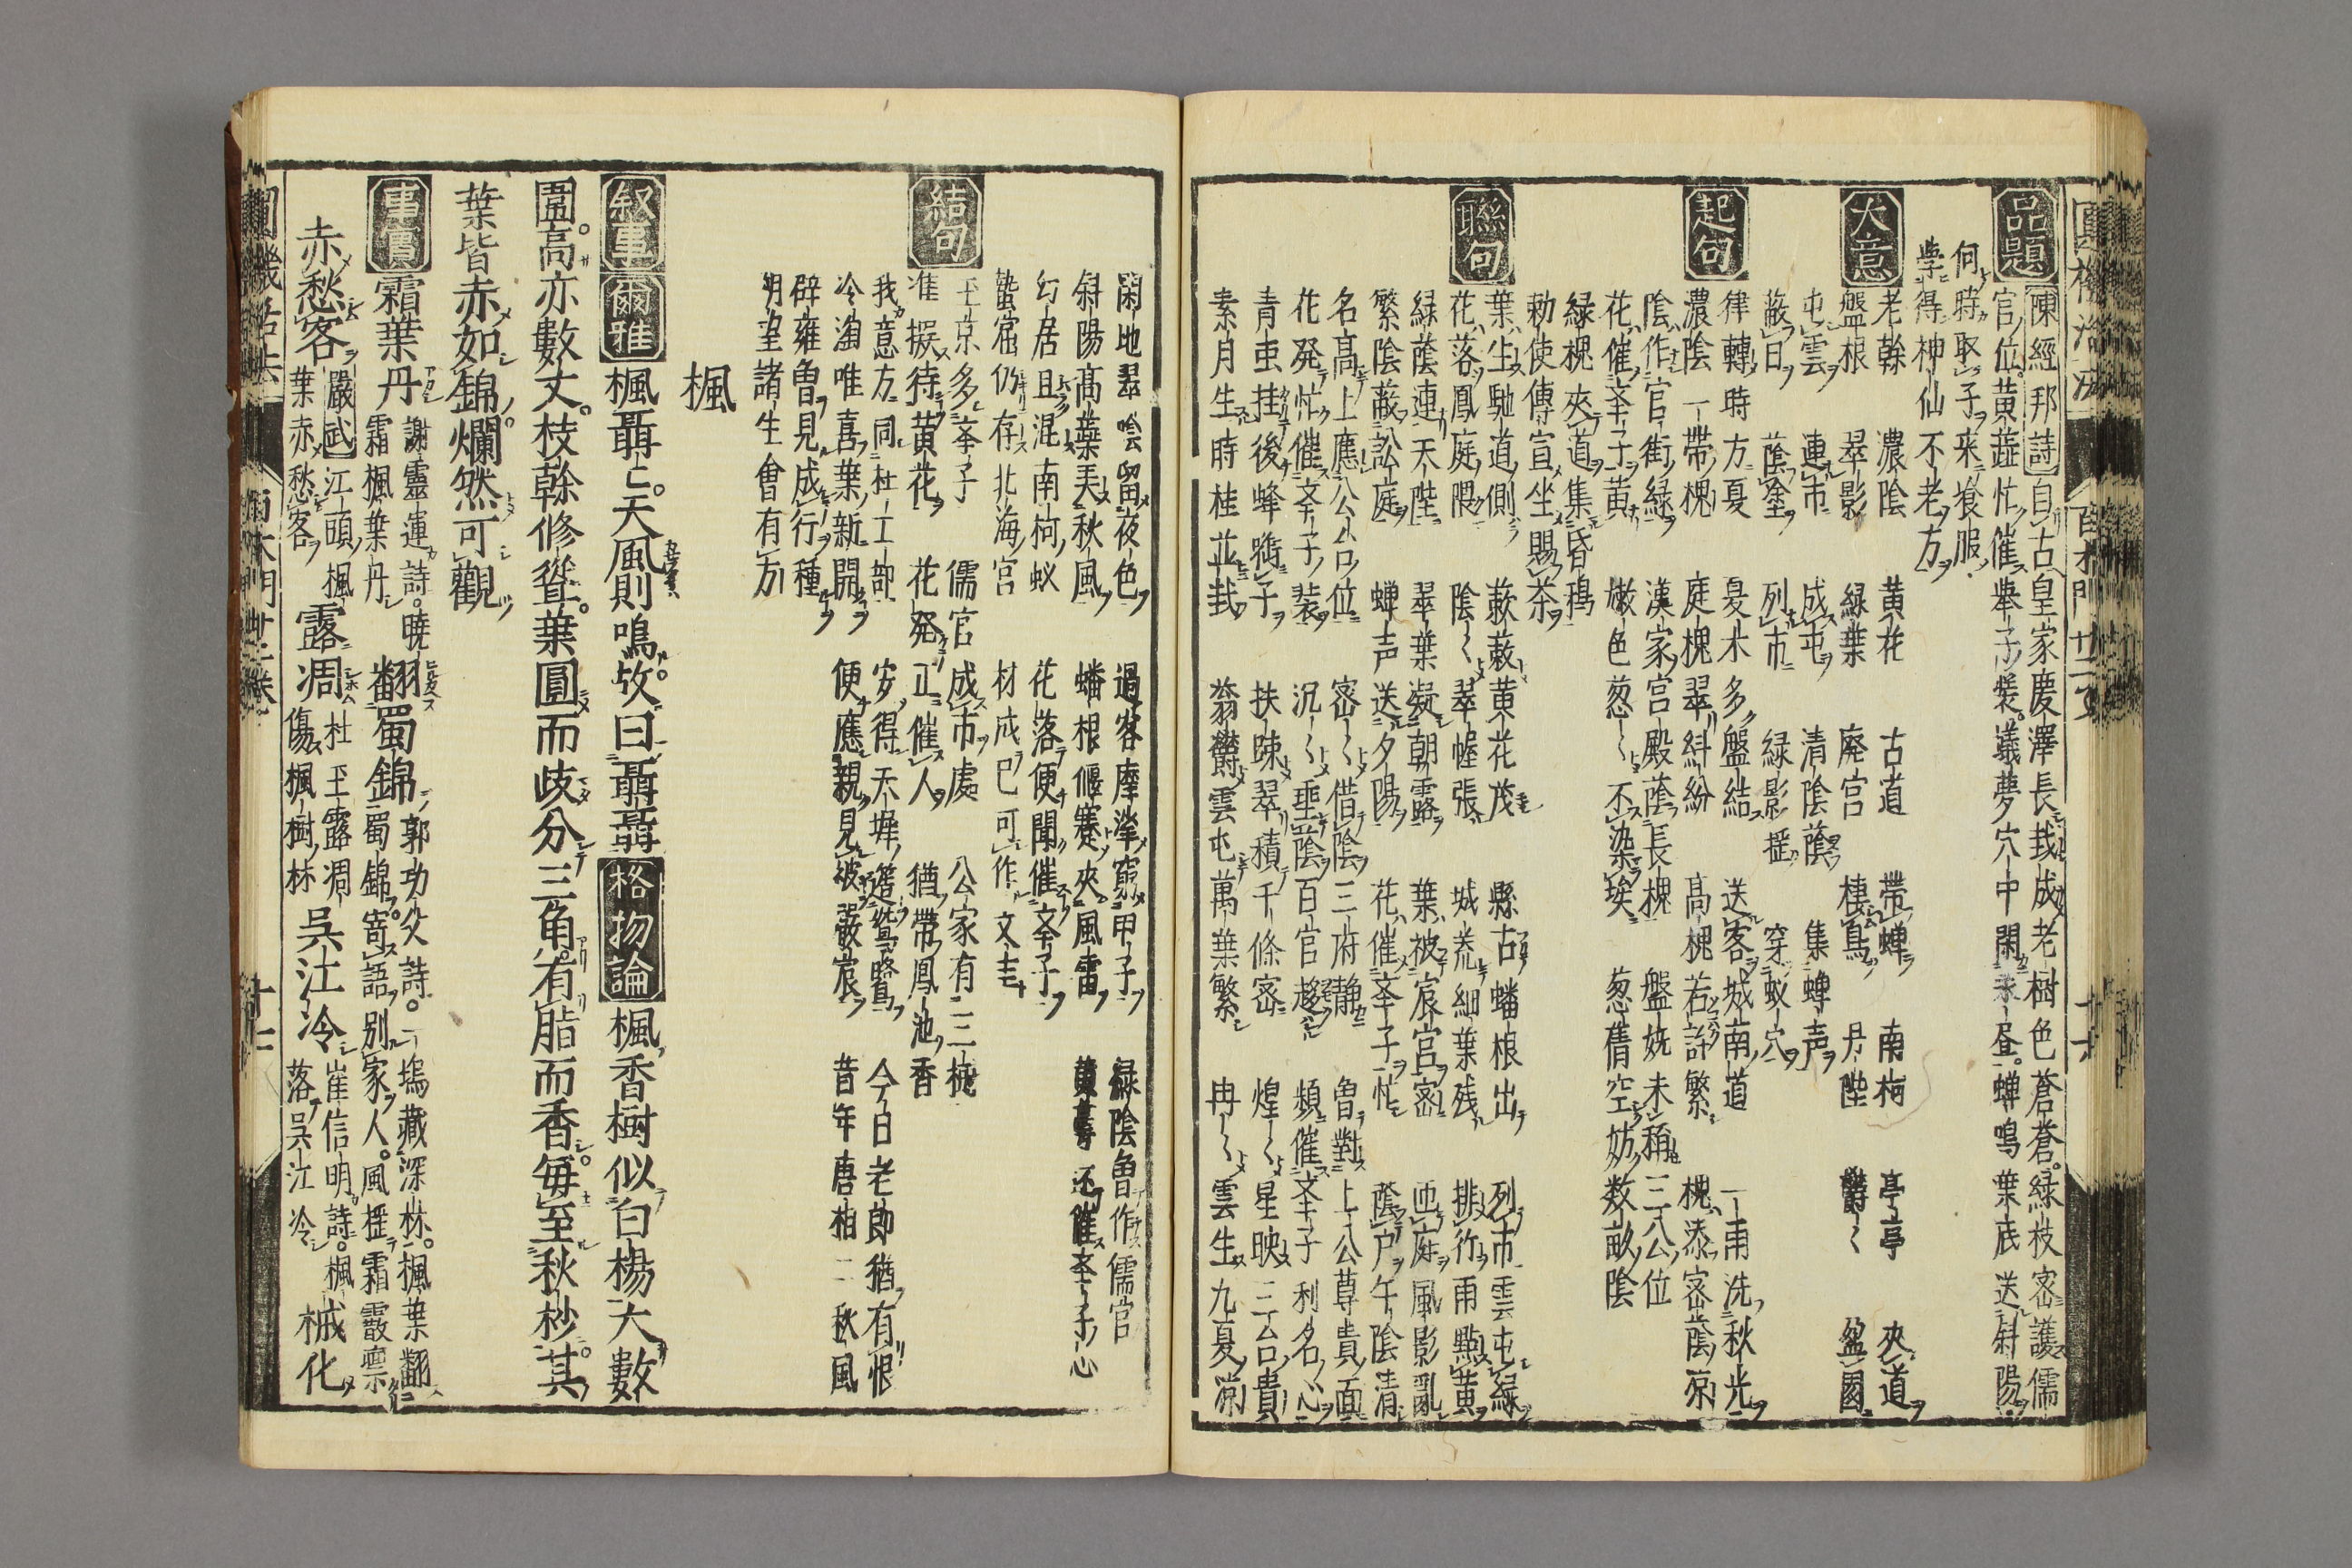 品題 陳經邦詩 自古皇家慶澤長栽成老樹色蒼蒼緑枝密護儒
官位黄蕋忙催挙子裝蟻夢穴中閑永昼蝉鳴葉底送斜陽
何時取子来飡服
挙得神仙不老方
大意 老幹 濃陰 黄花 古道 帶蝉 南柯 亭亭 夾道
盤根 翠影 緑葉 廃宮 棲鳥 丹陛 欝〻 盈園
屯雲 連市 成屯 清陰蔭 集蝉声
蔽日 蔭塗 列市 緑影揺 穿蚁穴
起句 律轉時方夏 夏木多盤結 送客城南道 一雨洗秋光
濃陰一帶槐 庭槐翠糾紛 高槐若許繁 槐添密蔭凉
陰作官街緑 漢家宮殿蔭長槐 盤姺未稱三公位
花催挙子黄 嫩色葱〻不染埃 葱倩空妨数畝陰
緑槐夾道集昏鴉
勅使傳宣坐賜茶
聯句 葉生馳道側 蔌蔌黄花茂 縣古蟠根出 列市雲屯緑
花落鳳庭隈 陰〻翠幄張 城荒細葉残 排行雨點黄
緑蔭連天陛 翠葉凝朝露 葉被宸宮密 洒庭風影亂
繁陰蔽訟庭 蝉声送夕陽 花催挙子忙 蔭户午陰清
名高上應公台位 密〻借陰三府静 魯對上公尊貴面
花発忙催挙子裝 沉〻垂蔭百官趍 頻催挙子利名心
青虫挂後蜂隨子 扶踈翠積千條密 煌〻星映三台貴
素月生時桂並栽 蓊欝雲屯萬葉繁 冉〻雲生九夏凉
閑地翠陰留夜色 過客摩挲窮甲子 緑陰魯作儒官
斜陽高葉美秋風 蟠根偃蹇夾風雷 黄蕚还催挙子心
幻居且混南柯蚁 花落便聞催挙子
蟄窟仍存北海宮 材成已可作文圭
結句 王京多挙子 儒官成市處 公家有三槐
准擬待黄花 花発正催人 猶帶鳳池香
我意方同杜工部 安得天墀簉鴛鷺 今日老郎猶有恨
冷淘唯喜葉新開 便應親見被嚴宸 昔年唐相二秋風
辟雍曾見成行種
朔望諸生會有方
楓
叙事 爾雅 楓聶〻天風則鳴故曰聶聶 格物論 楓香樹似白楊大數
圍高亦數丈枝幹修聳葉圓而歧分三角有脂而香毎至秋杪其
葉皆赤如錦爛然可觀
事實 霜葉丹 謝靈運詩曉霜楓葉丹 翻蜀錦 郭功父詩一塢藏深林楓葉翻蜀錦寄語別家人風揺霜霰凛
赤愁客 嚴武江頭楓葉赤愁客 露凋 杜玉露凋傷楓樹林 呉江冷 崔信明詩楓落呉江冷 椷化